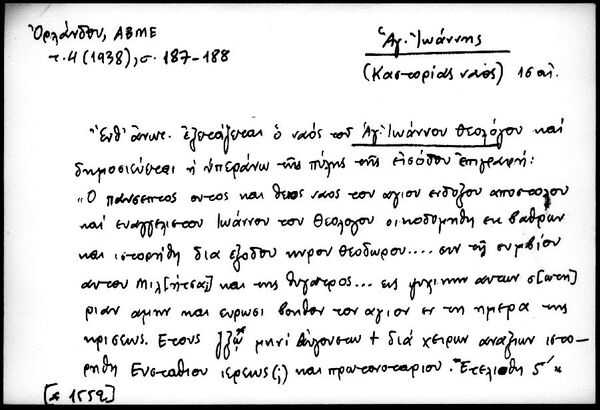 Ὀρλάνδου, ΑΒΜΕ
τ. 4 (1938), σ. 187-188
Ἁγ. Ἰωάννης
(Καστορίας ναὸς) 16 αἰ.
Ἔνθ' ἄνωτ. ἐξετάζεται ὁ ναὸς τοῦ Ἁγ. Ἰωάννου Θεολόγου καὶ
δημοσιεύεται ἡ ὑπεράνω τῆς πύλης τῆς εἰσόδου ἐπιγραφή:
"Ο πανσεπτος ουτος και θειος ναος του αγιου ενδοξου αποστολου
και ευαγγελιστου Ιωάννου του Θεολογου οικοδομηθη εκ βαθρων
και ιστορήθη δια εξοδου κυρου Θεοδωρου.... συν τῆ συμβίου
αυτου Μιλ[ήτσας] και της θυγατρος... εις ψυχικην αυτων σ[ωτη]
ριαν αμην και ευρωσι βοηθον τον αγιον εν τη ημερα της
κρισεως. Ετους μηνὶ Αὐγουστω + διά χειρων αναξιων ιστο-
ρηθη Ευσταθιου ιερεως(;) και πρωτονοταριου. Ἐτελιοθη 5'"
[* 1552]